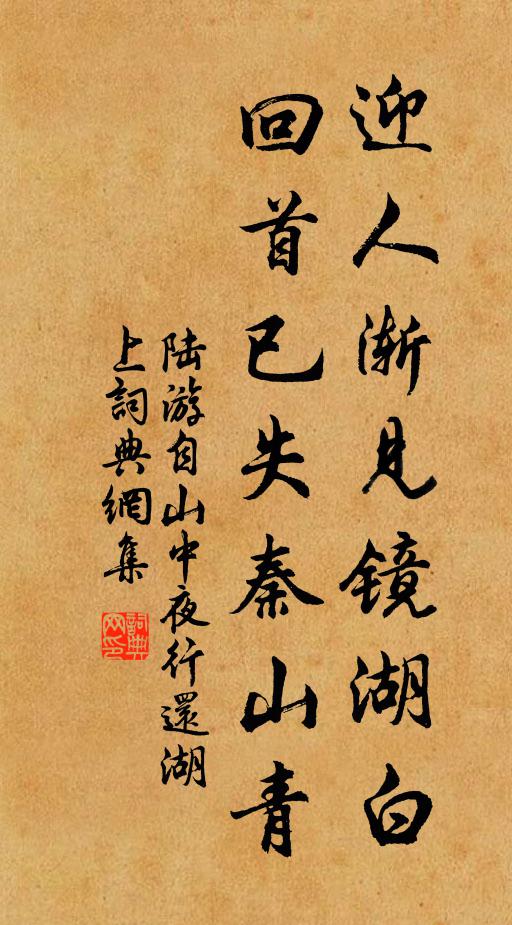 迎人渐见镜湖白
回首已失秦山青
陆游自山中夜行還湖
上詞典網集
詞典网印